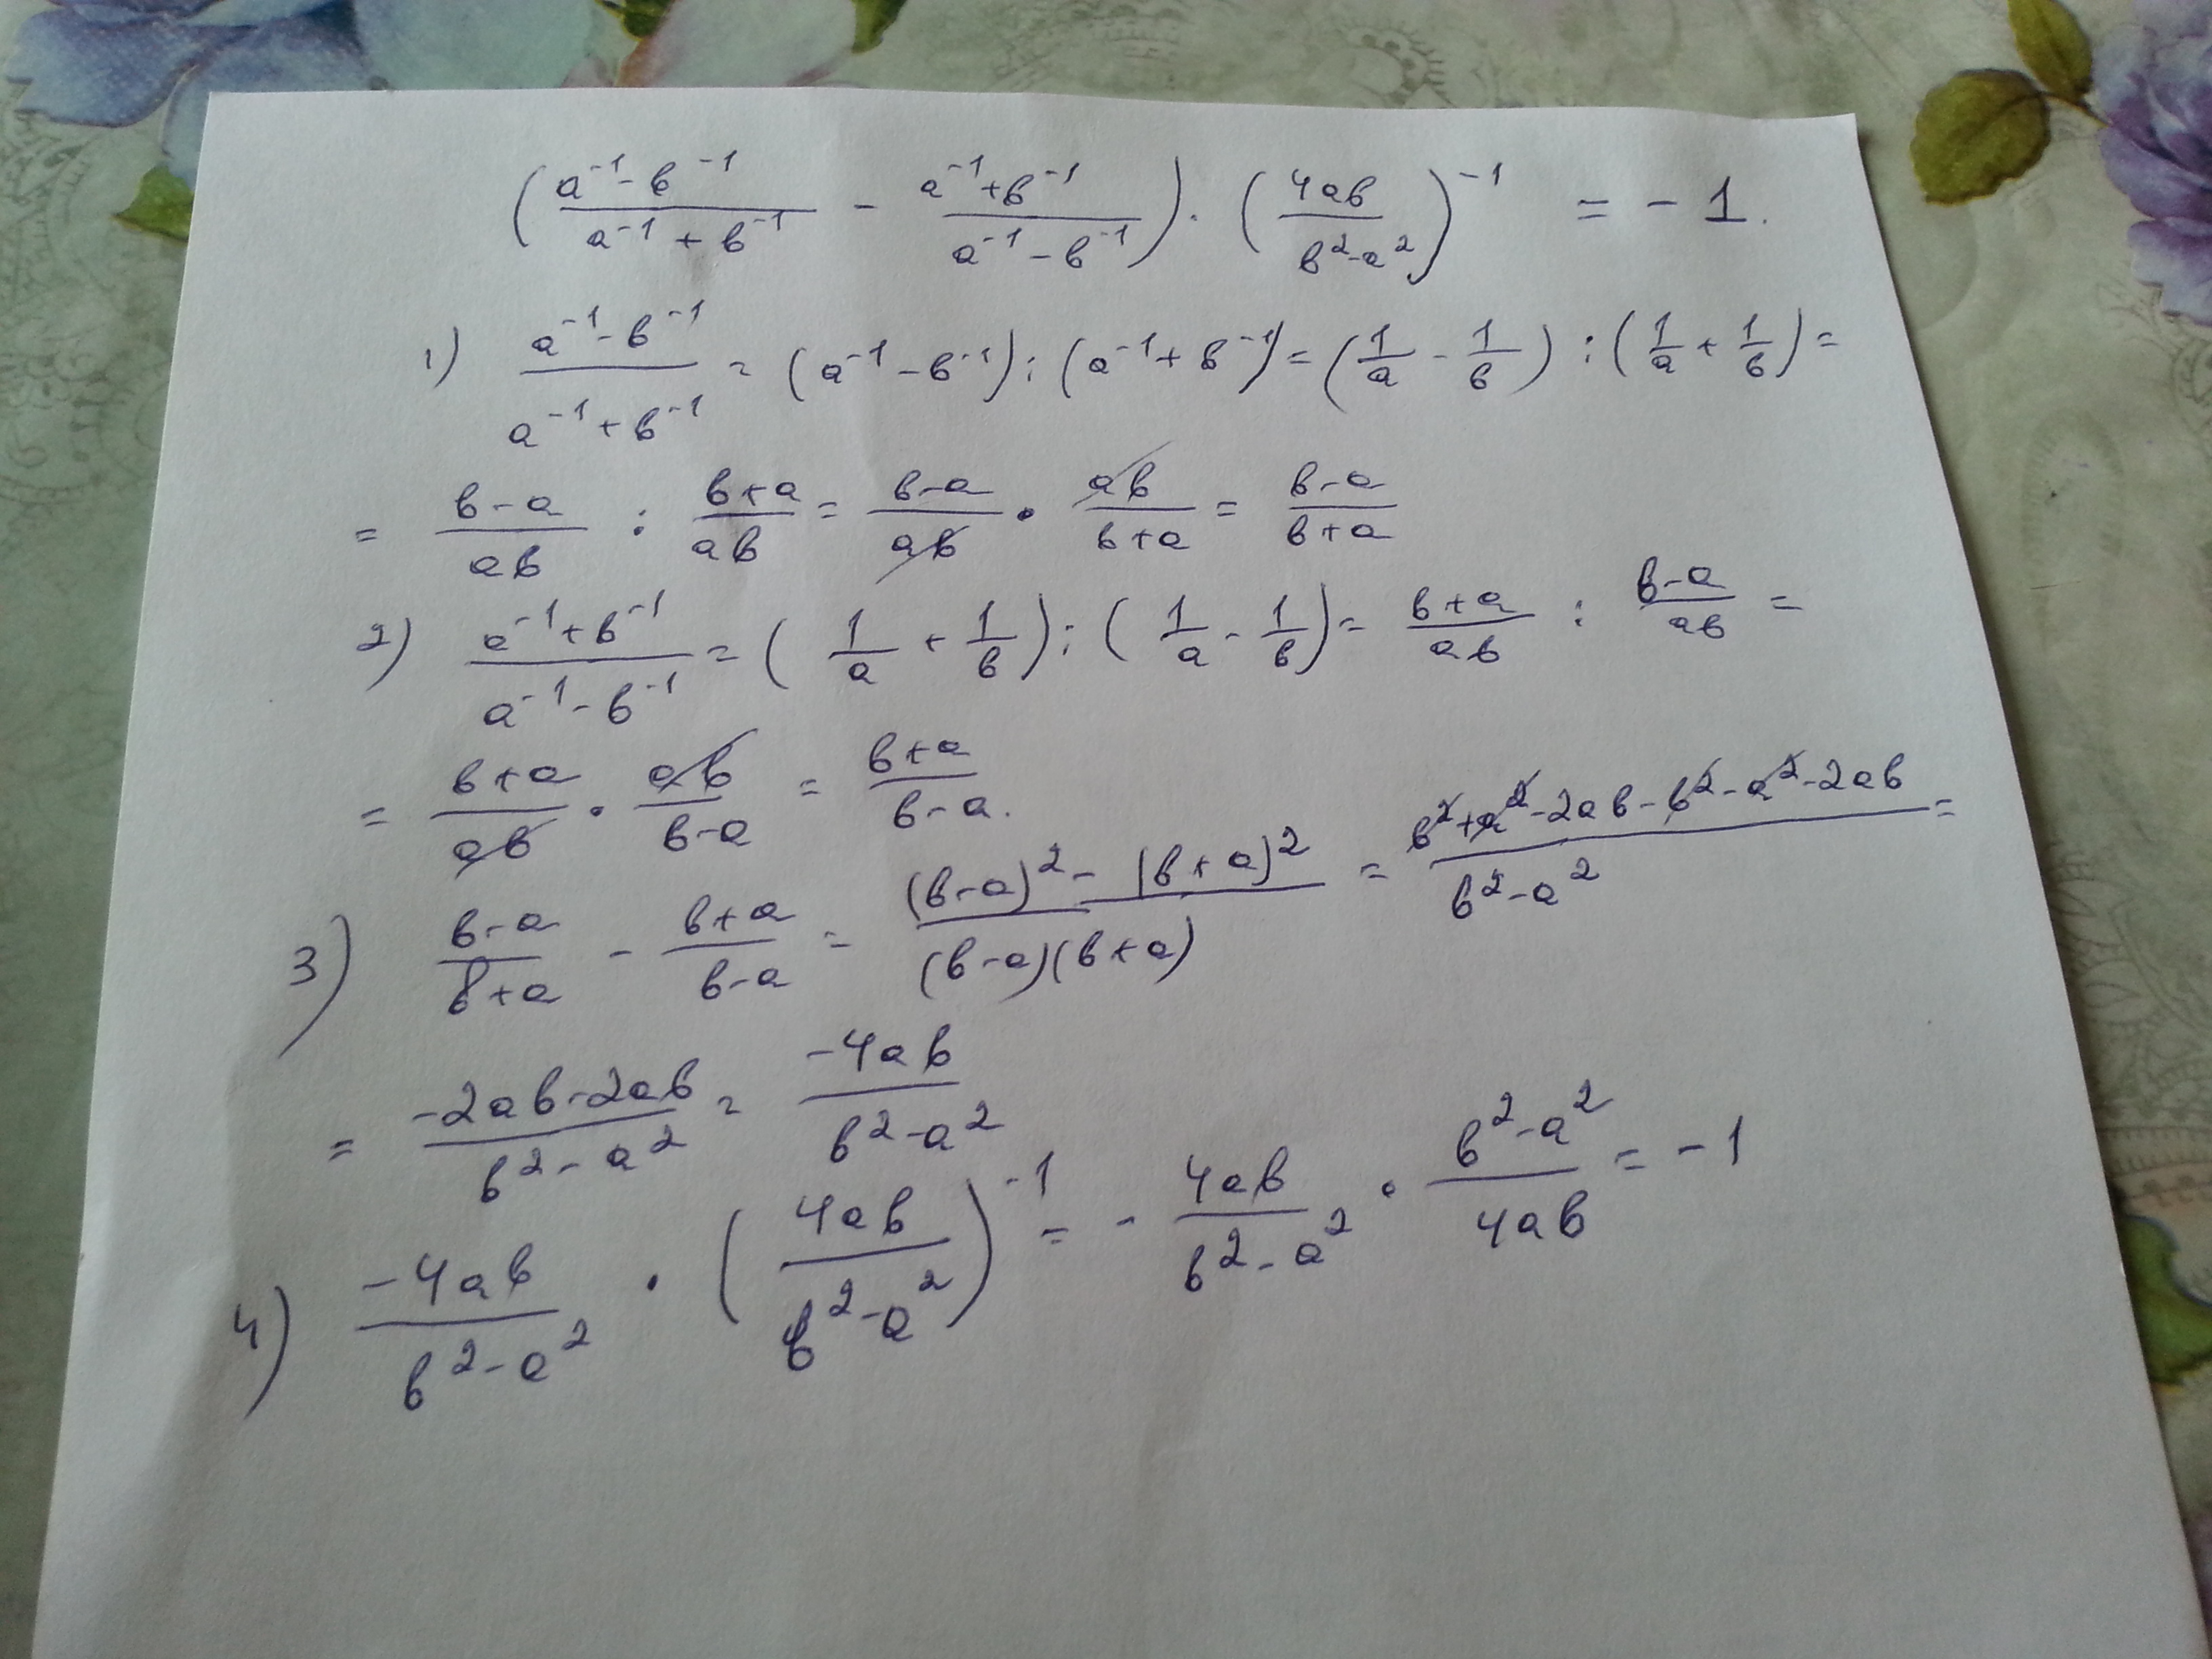 (a⁻¹-b⁻¹/a⁻¹+b⁻¹ - a⁻¹+b⁻¹/a⁻¹-b⁻¹)·(4ab/b²-a²)⁻¹ = -1.
1) a⁻¹-b⁻¹/a⁻¹+b⁻¹ = (a⁻¹-b⁻¹):(a⁻¹+b⁻¹) = (1/a - 1/b) : (1/a + 1/b) =
= b-a/ab : b+a/ab = b-a/ab · ab/b+a = b-a/b+a
2) a⁻¹+b⁻¹/a⁻¹-b⁻¹ = (1/a + 1/b) : (1/a - 1/b) = b+a/ab : b-a/ab =
= b+a/ab · ab/b-a = b+a/b-a.
3) b-a/b+a - b+a/b-a = (b-a)²-(b+a)²/(b-a)(b+a) = b²+a²-2ab-b²-a²-2ab/b²-a² =
= -2ab-2ab/b²-a² = -4ab/b²-a²
4) -4ab/b²-a² · (4ab/b²-a²)⁻¹ = - 4ab/b²-a² · b²-a²/4ab = -1